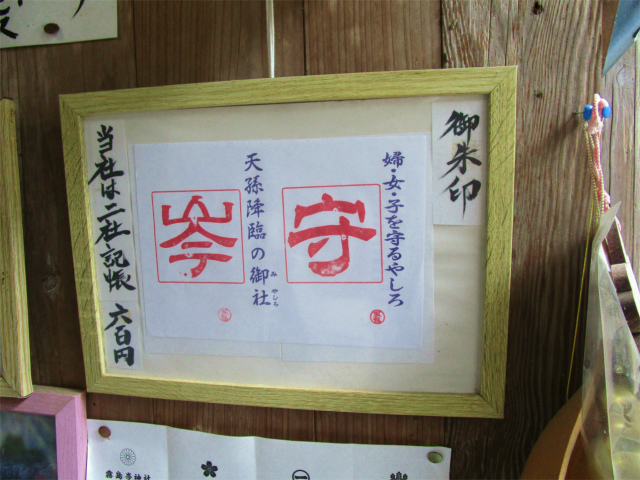 御朱印
婦・女・子を守るやしろ
守
天孫降臨の御社
み やしろ
岑
当社は二社記帳 六百円
霧島岑神社